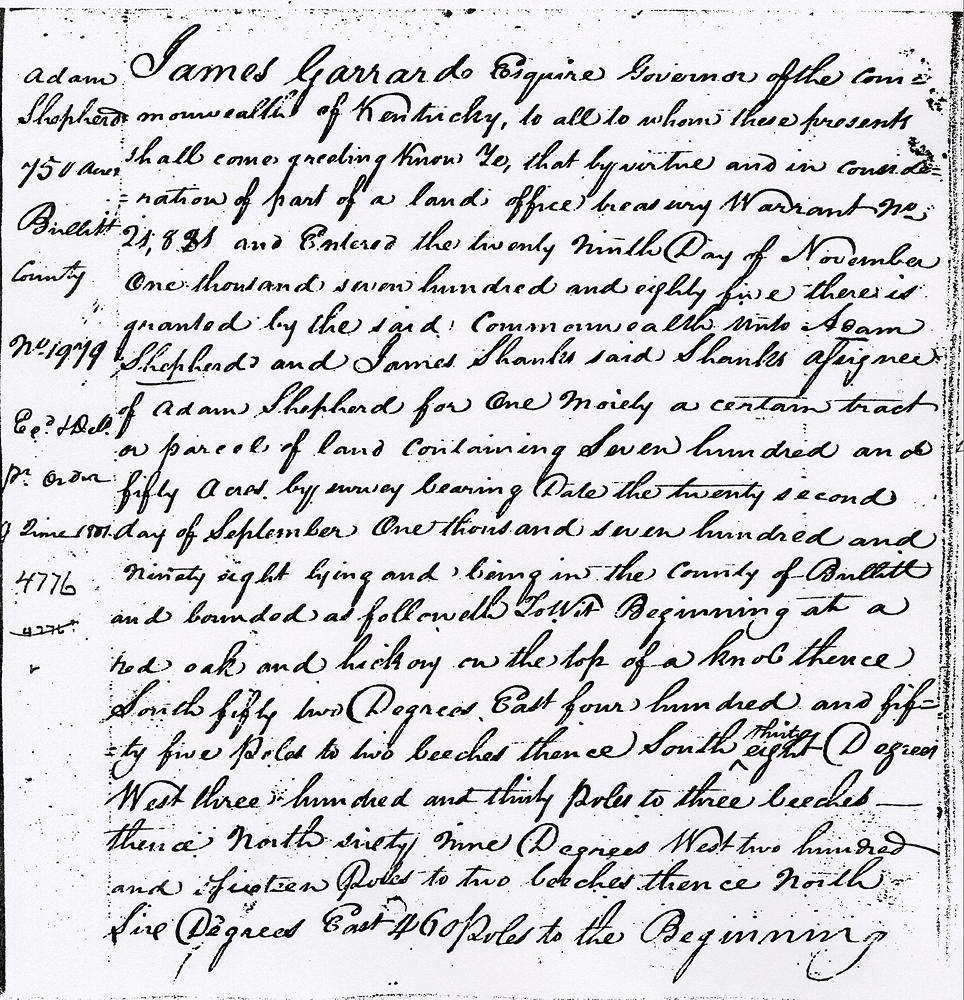 Adam
Shepherd
750 Acres
Bullitt
County
No. 1979
Ex.d & Del.
pr. Order
9 June 1801.
4776
4776
James Garrard Esquire Governor of the com=
monwealth of Kentucky, to all to whom these presents
shall come greeting Know Ye, that by virtue and in conside=
=ration of part of a land office treasury Warrant No.
21,881 and Entered the twenty Ninth Day of November
One thousand seven hundred and eighty five there is
granted by the said Commonwealth Unto Adam
Shepherd and James Shanks said Shanks assignee
of Adam Shepherd for One Moiety a certain tract
or parcel of land Containing Seven hundred and
fifty Acres by survey bearing Date the twenty second
day of September One thousand seven hundred and
ninety eight lying and being in the County of Bullitt
and bounded as followeth To Wit Beginning at a
red oak and hickory on the top of a knob thence
South fifty two Degrees East four hundred and fif=
=ty five Poles to two beeches thence South thirty eight Degrees
West three hundred and thirty Poles to three beeches —
thence North sixty Nine Degrees West two hundred
and fifteen Poles to two beeches thence North
Six Degrees East 460 Poles to the Beginning